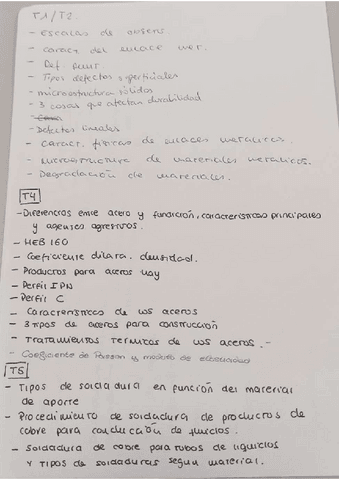 T1/T2
- escalas de observ.
- caract del enlace met.
- Def. punt.
- Tipos defectos superficiales
- microestructura sólidos
- 3 cosas que afectan durabilidad
- Defectos lineales
- Caract. físicas de enlaces metálicos.
- Microestructura de materiales metálicos.
- Degradación de materiales.
T4
- Diferencias entre acero y fundición, características principales
y agentes agresivos.
- HEB 160
- Coeficiente dilata. densidad.
- Productos para aceros hay
- Perfil IPN
- Perfil C
- Características de los aceros
- 3 tipos de aceros para construcción
- Tratamientos térmicos de los aceros. -
- Coeficiente de Poisson y módulo de elasticidad
T5
- Tipos de soldadura en función del material
de aporte
- Procedimiento de soldadura de productos de
cobre para conducción de fluidos.
- Soldadura de cobre para tubos de líquidos
y tipos de soldaduras según material.